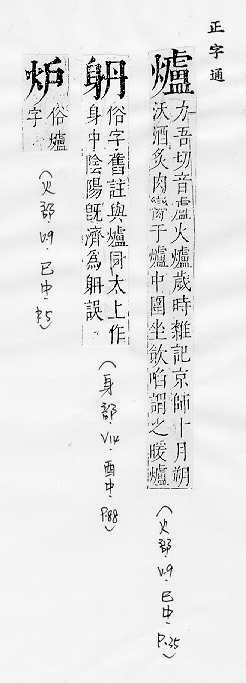 正字通
爐
力吾切音盧火爐歲時雜記京師十月朔
沃酒炙肉臠于爐中圍坐飲啗謂之暖爐
(火部.V9.巳中.P.35)
俗字舊註與爐同太上作
身中陰陽旣濟爲誤
(身部.V14.酉中.P.88)
炉
俗爐
字
(火部.V9.巳中.P.5)